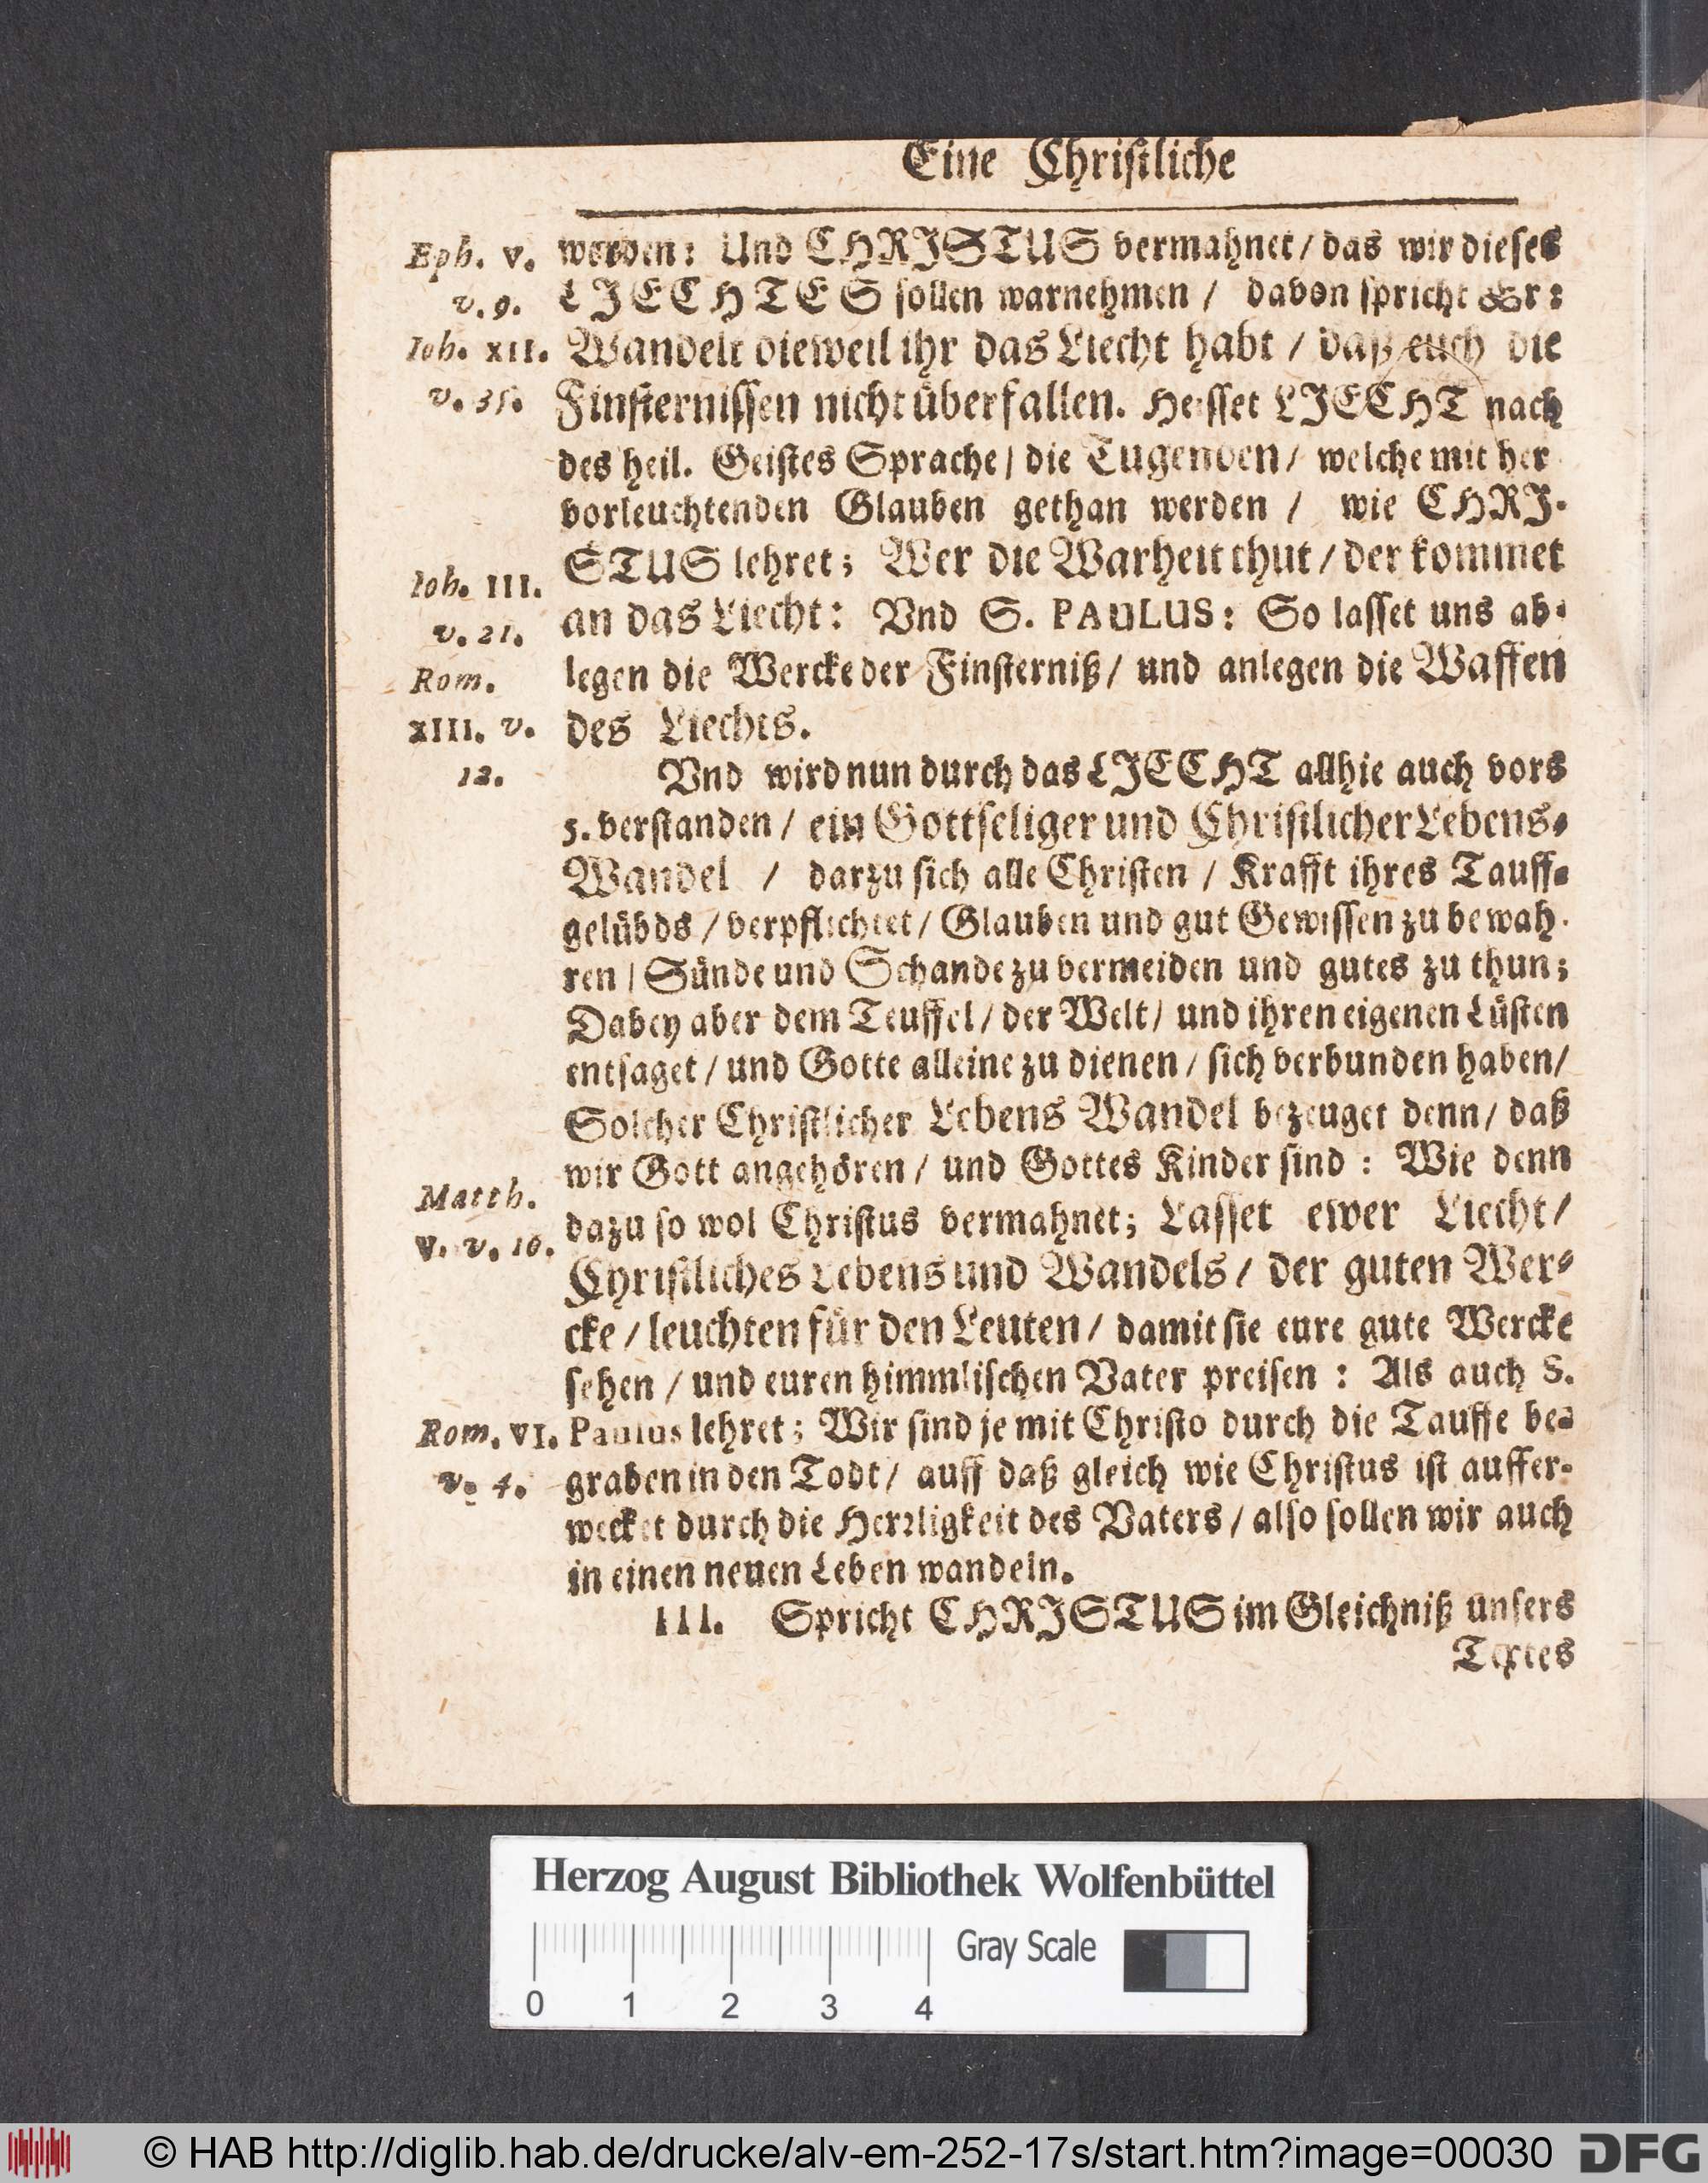 Eine Christliche
Eph. V.
v. 9.
Ioh. XII.
v. 35.
Ioh. III.
v. 21.
Rom.
XIII. v.
12.
Matth.
V. v. 16.
Rom. VI.
v. 4.
werden: Und CHRISTUS vermahnet / das wir dieses
LIECHTES sollen warnehmen / davon spricht Er:
Wandelt dieweil ihr das Liecht habt / daß euch die
Finsternissen nicht überfallen. Heisset LIECHT nach
des heil. Geistes Sprache / die Tugenden / welche mit her
vorleuchtenden Glauben gethan werden / wie CHRI-
STUS lehret; Wer die Warheit thut / der kommet
an das Liecht: Vnd S. PAULUS: So lasset uns ab-
legen die Wercke der Finsterniß / und anlegen die Waffen
des Liechts.
Vnd wird nun durch das LIECHT allhie auch vors
5. verstanden / ein Gottseliger und Christlicher Lebens-
Wandel / darzu sich alle Christen / Krafft ihres Tauff-
gelübds / verpflichtet / Glauben und gut Gewissen zu bewah-
ren / Sünde und Schande zu vermeiden und gutes zu thun;
Dabey aber dem Teuffel / der Welt / und ihren eigenen Lüsten
entsaget / und Gotte alleine zu dienen / sich verbunden haben /
Solcher Christlicher Lebens Wandel bezeuget denn / daß
wir Gott angehören / und Gottes Kinder sind : Wie denn
dazu so wol Christus vermahnet; Lasset ewer Liecht /
Christliches Lebens und Wandels / der guten Wer-
cke / leuchten für den Leuten / damit sie eure gute Wercke
sehen / und euren himmlischen Vater preisen : Als auch S.
Paulus lehret; Wir sind je mit Christo durch die Tauffe be-
graben in den Todt / auff daß gleich wie Christus ist auffer-
wecket durch die Herrligkeit des Vaters / also sollen wir auch
in einen neuen Leben wandeln.
III. Spricht CHRISTUS im Gleichniß unsers
Textes
Herzog August Bibliothek Wolfenbüttel
Gray Scale
0 1 2 3 4
© HAB http://diglib.hab.de/drucke/alv-em-252-17s/start.htm?image=00030
DFG